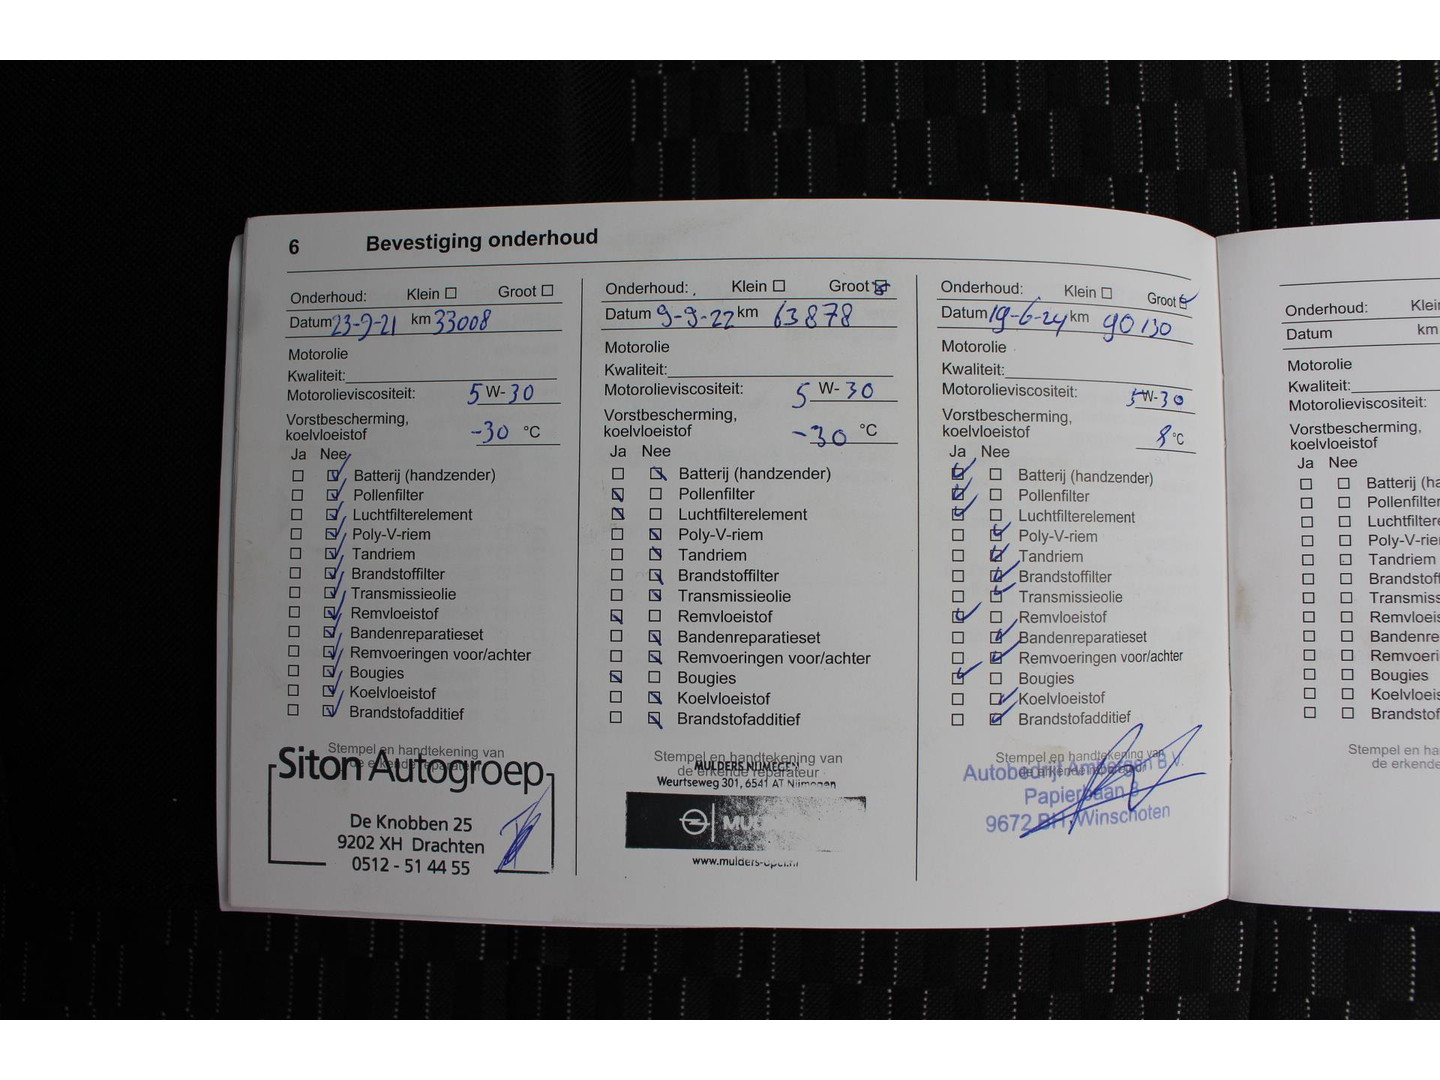 6 Bevestiging onderhoud
Onderhoud: Klein Groot
Datum 23-9-21 km 33008
Motorolie
Kwaliteit:
Motorolieviscositeit: 5 W- 30
Vorstbescherming,
koelvloeistof -30 °C
Ja Nee
Batterij (handzender)
Pollenfilter
Luchtfilterelement
Poly-V-riem
Tandriem
Brandstoffilter
Transmissieolie
Remvloeistof
Bandenreparatieset
Remvoeringen voor/achter
Bougies
Koelvloeistof
Brandstofadditief
Stempel en handtekening van
de erkende reparateur
Siton Autogroep
De Knobben 25
9202 XH Drachten
0512 - 51 44 55
Onderhoud: Klein Groot
Datum 9-9-22 km 63878
Motorolie
Kwaliteit:
Motorolieviscositeit: 5 W- 30
Vorstbescherming,
koelvloeistof -30 °C
Ja Nee
Batterij (handzender)
Pollenfilter
Luchtfilterelement
Poly-V-riem
Tandriem
Brandstoffilter
Transmissieolie
Remvloeistof
Bandenreparatieset
Remvoeringen voor/achter
Bougies
Koelvloeistof
Brandstofadditief
Stempel en handtekening van
de erkende reparateur
MULDERS NIJMEGEN
Weurtseweg 301, 6541 AT Nijmegen
MUL
www.mulders-opel.nl
Onderhoud: Klein Groot
Datum 19-6-24 km 90130
Motorolie
Kwaliteit:
Motorolieviscositeit: 5 W- 30
Vorstbescherming,
koelvloeistof 8 °C
Ja Nee
Batterij (handzender)
Pollenfilter
Luchtfilterelement
Poly-V-riem
Tandriem
Brandstoffilter
Transmissieolie
Remvloeistof
Bandenreparatieset
Remvoeringen voor/achter
Bougies
Koelvloeistof
Brandstofadditief
Stempel en handtekening van
Autobedrijf B.V.
Papierbaan 8
9672 BH Winschoten
Onderhoud: Klein
Datum km
Motorolie
Kwaliteit:
Motorolieviscositeit:
Vorstbescherming,
koelvloeistof
Ja Nee
Batterij (ha
Pollenfilter
Luchtfiltere
Poly-V-rie
Tandriem
Brandstoff
Transmiss
Remvloeis
Bandenre
Remvoerin
Bougies
Koelvloeis
Brandstof
Stempel en ha
de erkende